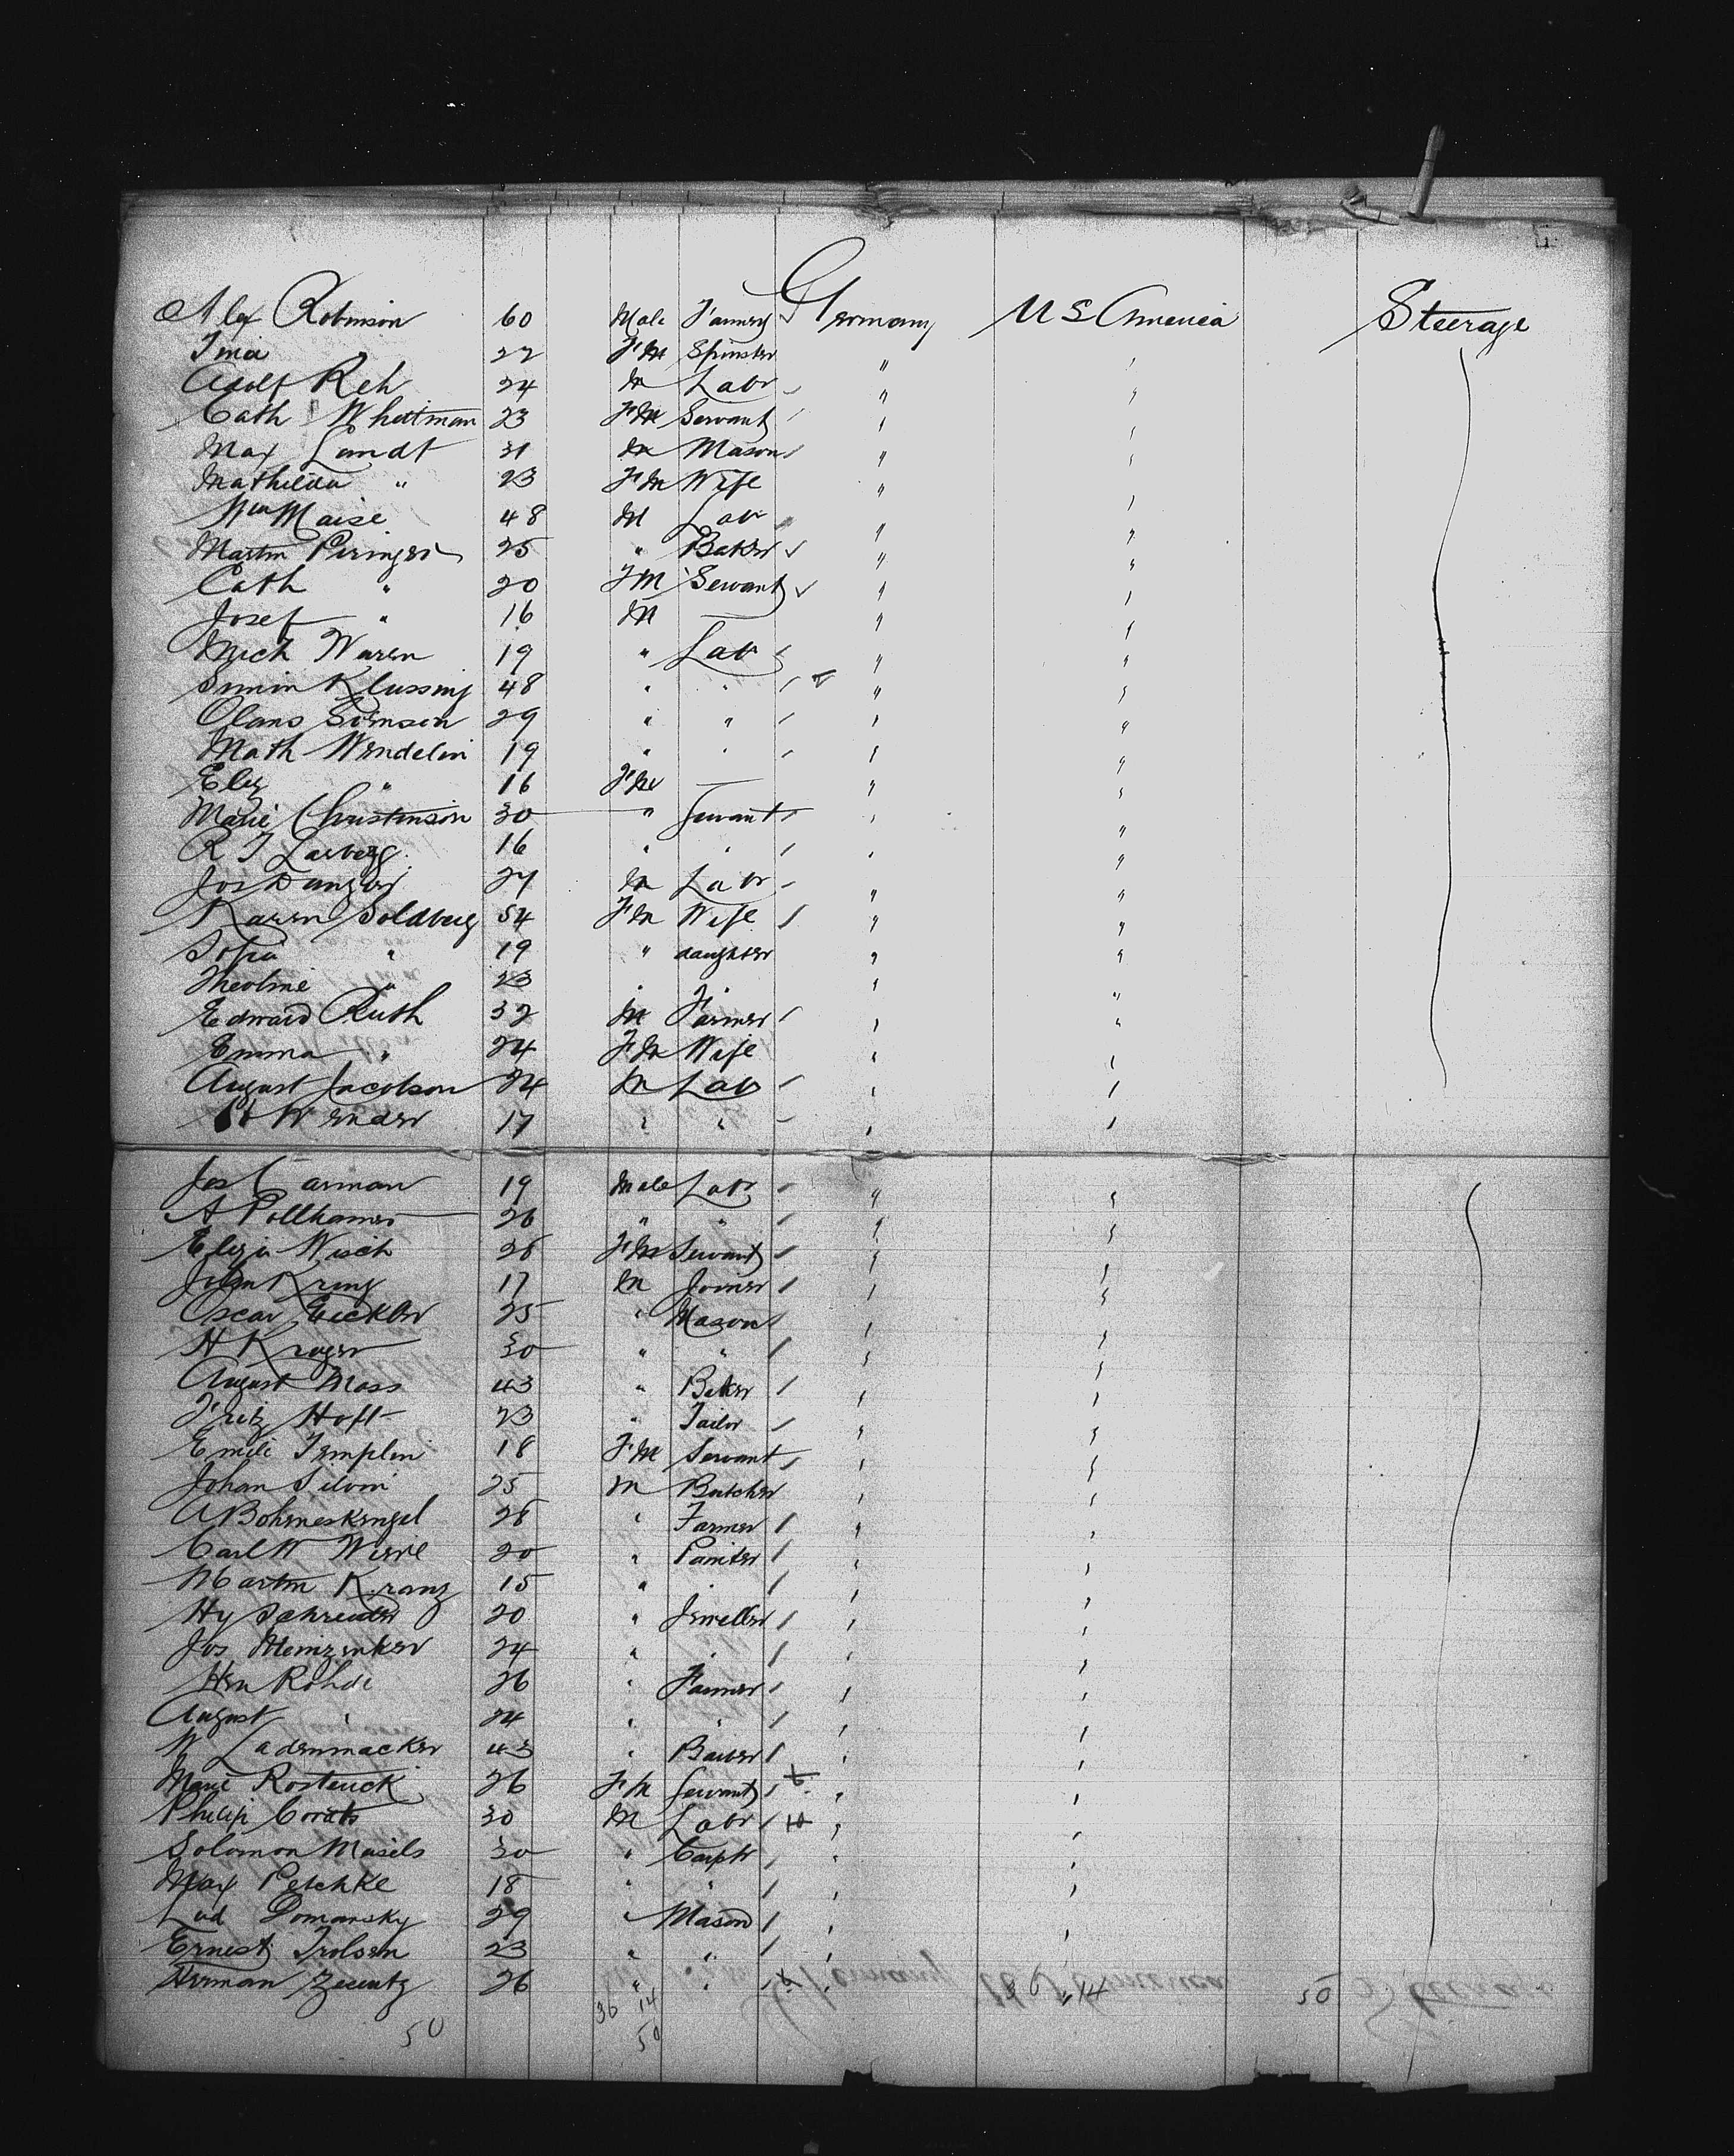 Alex Robinson 60 Male Farmer Germany U S America Steerage
Ima 22 FM Spinster " "
Adolf Reh 24 M Labr " "
Cath Whittman 23 FM Servant " "
Max Lundt 31 M Mason " "
Mathilda " 23 FM Wife " "
Wm Maise 48 M Labr " "
Martin Peringer 25 " Baker " "
Cath " 20 FM Servant " "
Josef " 16 M — " "
Mich Waren 19 " Labr " "
Simon Klussing 48 " " " "
Olans 29 " " " "
Math Wendelin 19 " " " "
Eliz " 16 FM — " "
Marie Christenson 30 " Servant " "
R J 16 " " " "
Jos Danzer 27 M Labr " "
Karen Soldberg 54 FM Wife " "
Sofia " 19 " daughter " "
Theoline " 23 " " " "
Edward Ruth 32 M Farmer " "
Emma " 24 FM Wife " "
August Jacobson 24 M Labr " "
Wender 17 " " " "
Jos Carman 19 Male Labr " "
A Pollhamer 26 " " " "
Eliza Wisch 28 FM Servant " "
John Kranz 17 M Joiner " "
Oscar Eickler 25 " Mason " "
H Kruger 30 " " " "
August Moss 43 " Baker " "
Fritz Hoft 23 " Tailor " "
Emili Templin 18 FM Servant " "
Johan Silvin 25 M Butcher " "
A Bohmeskengel 28 " Farmer " "
Carl W Wiese 20 " Painter " "
Martin Kranz 15 " " " "
Hy Schreuder 20 " Jeweller " "
Jos Meinzenker 24 " " " "
Hen Rohde 26 " Farmer " "
August " 24 " " " "
W Ladenmacker 43 " Barber " "
Marie Rosteuck 26 FM Servant " "
Philip 30 M Labr " "
Solomon Masels 30 " Carptr " "
Max Petchke 18 " " " "
Lud Domansky 29 " Mason " "
Ernest Trolsen 23 " " " "
Herman 26 " " " "
36 14 36 14 50
50 50